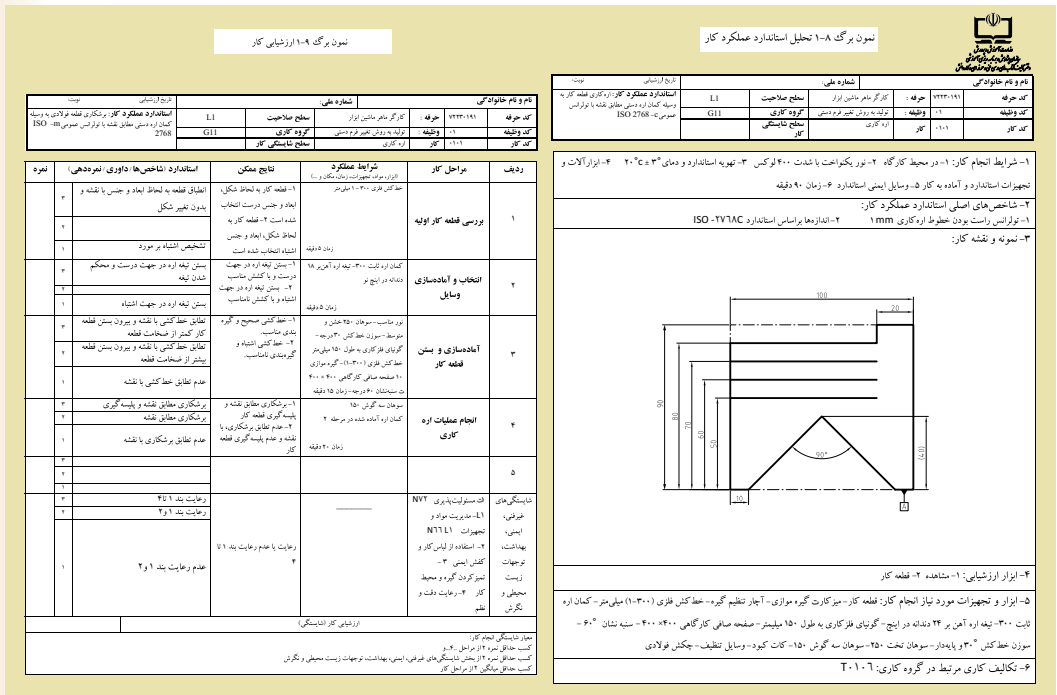 نمون برگ ۸-۱ تحلیل استاندارد عملکرد کار
نام و نام خانوادگی
شماره ملی:
تاریخ ارزشیابی
نوبت:
کد حرفه
۷۲۲۳۰۱۹۱
حرفه :
کارگر ماهر ماشین ابزار
سطح صلاحیت
L1
استاندارد عملکرد کار: اره‌کاری قطعه کار به وسیله کمان اره دستی مطابق نقشه با تولرانس عمومی ISO 2768 -c
کد وظیفه
۰۱
وظیفه:
تولید به روش تغییر فرم دستی
گروه کاری
G11
کد کار
۰۱۰۱
کار
اره کاری
سطح شایستگی کار
۱- شرایط انجام کار: ۱- در محیط کارگاه ۲- نور یکنواخت با شدت ۴۰۰ لوکس ۳- تهویه استاندارد و دمای ۲۰°c ± ۳° ۴- ابزارآلات و
تجهیزات استاندارد و آماده به کار ۵- وسایل ایمنی استاندارد ۶- زمان ۹۰ دقیقه
۲- شاخص‌های اصلی استاندارد عملکرد کار:
۱- تولرانس راست بودن خطوط اره‌کاری ۱mm ۲- اندازه‌ها براساس استاندارد ISO -۲۷۶۸C
۳- نمونه و نقشه کار:
100
20
90
80
70
60
50
(40)
90°
10
A
۴- ابزار ارزشیابی: ۱- مشاهده ۲- قطعه کار
۵- ابزار و تجهیزات مورد نیاز انجام کار: قطعه کار- میزکارت گیره موازی- آچار تنظیم گیره- خط‌کش فلزی (۳۰۰-۱) میلی‌متر- کمان اره
ثابت ۳۰۰- تیغه اره آهن بر ۲۴ دندانه در اینچ- گونیای فلزکاری به طول ۱۵۰ میلیمتر- صفحه صافی کارگاهی ۴۰۰×۴۰۰ - سنبه نشان ۶۰° -
سوزن خط‌کش ۳۰° و پایه‌دار- سوهان تخت ۲۵۰- سوهان سه گوش ۱۵۰- کات کبود- وسایل تنظیف- چکش فولادی
۶- تکالیف کاری مرتبط در گروه کاری: T۰۱۰۶
نمون برگ ۹-۱ ارزشیابی کار
نام و نام خانوادگی
شماره ملی:
تاریخ ارزشیابی
نوبت:
کد حرفه
۷۲۲۳۰۱۹۱
حرفه :
کارگر ماهر ماشین ابزار
سطح صلاحیت
L1
استاندارد عملکرد کار: برشکاری قطعه فولادی به وسیله کمان اره دستی مطابق نقشه با تولرانس عمومی ISO -m 2768
کد وظیفه
۰۱
وظیفه:
تولید به روش تغییر فرم دستی
گروه کاری
G11
کد کار
۰۱۰۱
کار
اره کاری
سطح شایستگی کار
ردیف
مراحل کار
شرایط عملکرد
(ابزار، مواد، تجهیزات، زمان، مکان و ...)
نتایج ممکن
استاندارد (شاخص‌ها/داوری/نمره‌دهی)
نمره
۱
بررسی قطعه کار اولیه
خط‌کش فلزی ۳۰۰-۱ میلی‌متر
زمان ۵ دقیقه
۱- قطعه کار به لحاظ شکل،
ابعاد و جنس درست انتخاب
شده است ۲- قطعه کار به
لحاظ شکل، ابعاد و جنس
اشتباه انتخاب شده است
انطباق قطعه به لحاظ ابعاد و جنس با نقشه و
بدون تغییر شکل
۳
۲
تشخیص اشتباه بر مورد
۱
۲
انتخاب و آماده‌سازی
وسایل
کمان اره ثابت ۳۰۰- تیغه اره آهن‌بر ۱۸
دندانه در اینچ نو
زمان ۵ دقیقه
۱- بستن تیغه اره در جهت
درست و با کشش مناسب
۲- بستن تیغه اره در جهت
اشتباه و با کشش نامناسب
بستن تیغه اره در جهت درست و محکم
شدن تیغه
۳
۲
بستن تیغه اره در جهت اشتباه
۱
۳
آماده‌سازی و بستن
قطعه کار
نور مناسب- سوهان ۲۵۰ خشن و
متوسط- سوزن خط‌کش ۳۰ درجه-
گونیای فلزکاری به طول ۱۵۰ میلی‌متر
خط‌کش فلزی (۳۰۰-۱)- گیره موازی
۱۰ صفحه صافی کارگاهی ۴۰۰ × ۴۰۰
سنبه‌نشان ۶۰ درجه- زمان ۱۵ دقیقه
۱- خط‌کشی صحیح و گیره
بندی مناسب.
۲- خط‌کشی اشتباه و
گیره‌بندی نامناسب.
تطابق خط‌کشی با نقشه و بیرون بستن قطعه
کار کمتر از ضخامت قطعه
۳
تطابق خط‌کشی با نقشه و بیرون بستن قطعه
بیشتر از ضخامت قطعه
۲
عدم تطابق خط‌کشی با نقشه
۱
۴
انجام عملیات اره
کاری
سوهان سه گوش ۱۵۰
کمان اره آماده شده در مرحله ۲
زمان ۲۰ دقیقه
۱- برشکاری مطابق نقشه و
پلیسه‌گیری قطعه کار
۲- عدم تطابق برشکاری، با
نقشه و عدم پلیسه‌گیری قطعه
کار
برشکاری مطابق نقشه و پلیسه‌گیری
۳
برشکاری مطابق نقشه
۲
عدم تطابق برشکاری با نقشه
۱
۵
۳
۲
۱
شایستگی‌های
غیرفنی،
ایمنی،
بهداشت،
توجهات
زیست
محیطی و
نگرش
مسئولیت‌پذیری N۷۲
L۱- مدیریت مواد و
تجهیزات N۶۶ L۱
۲- استفاده از لباس‌کار و
کفش ایمنی ۳-
تمیز کردن گیره و محیط
کار ۴- رعایت دقت و
نظم
رعایت یا عدم رعایت بند ۱ تا
۴
رعایت بند ۱ تا۴
۳
رعایت بند ۱ و۲
۲
عدم رعایت بند ۱ و۲
۱
ارزشیابی کار (شایستگی)
معیار شایستگی انجام کار:
کسب حداقل نمره ۲ از مراحل ..۴..و
کسب حداقل نمره ۲ از بخش شایستگی‌های غیرفنی، ایمنی، بهداشت، توجهات زیست محیطی و نگرش
کسب حداقل میانگین ۲ از مراحل کار